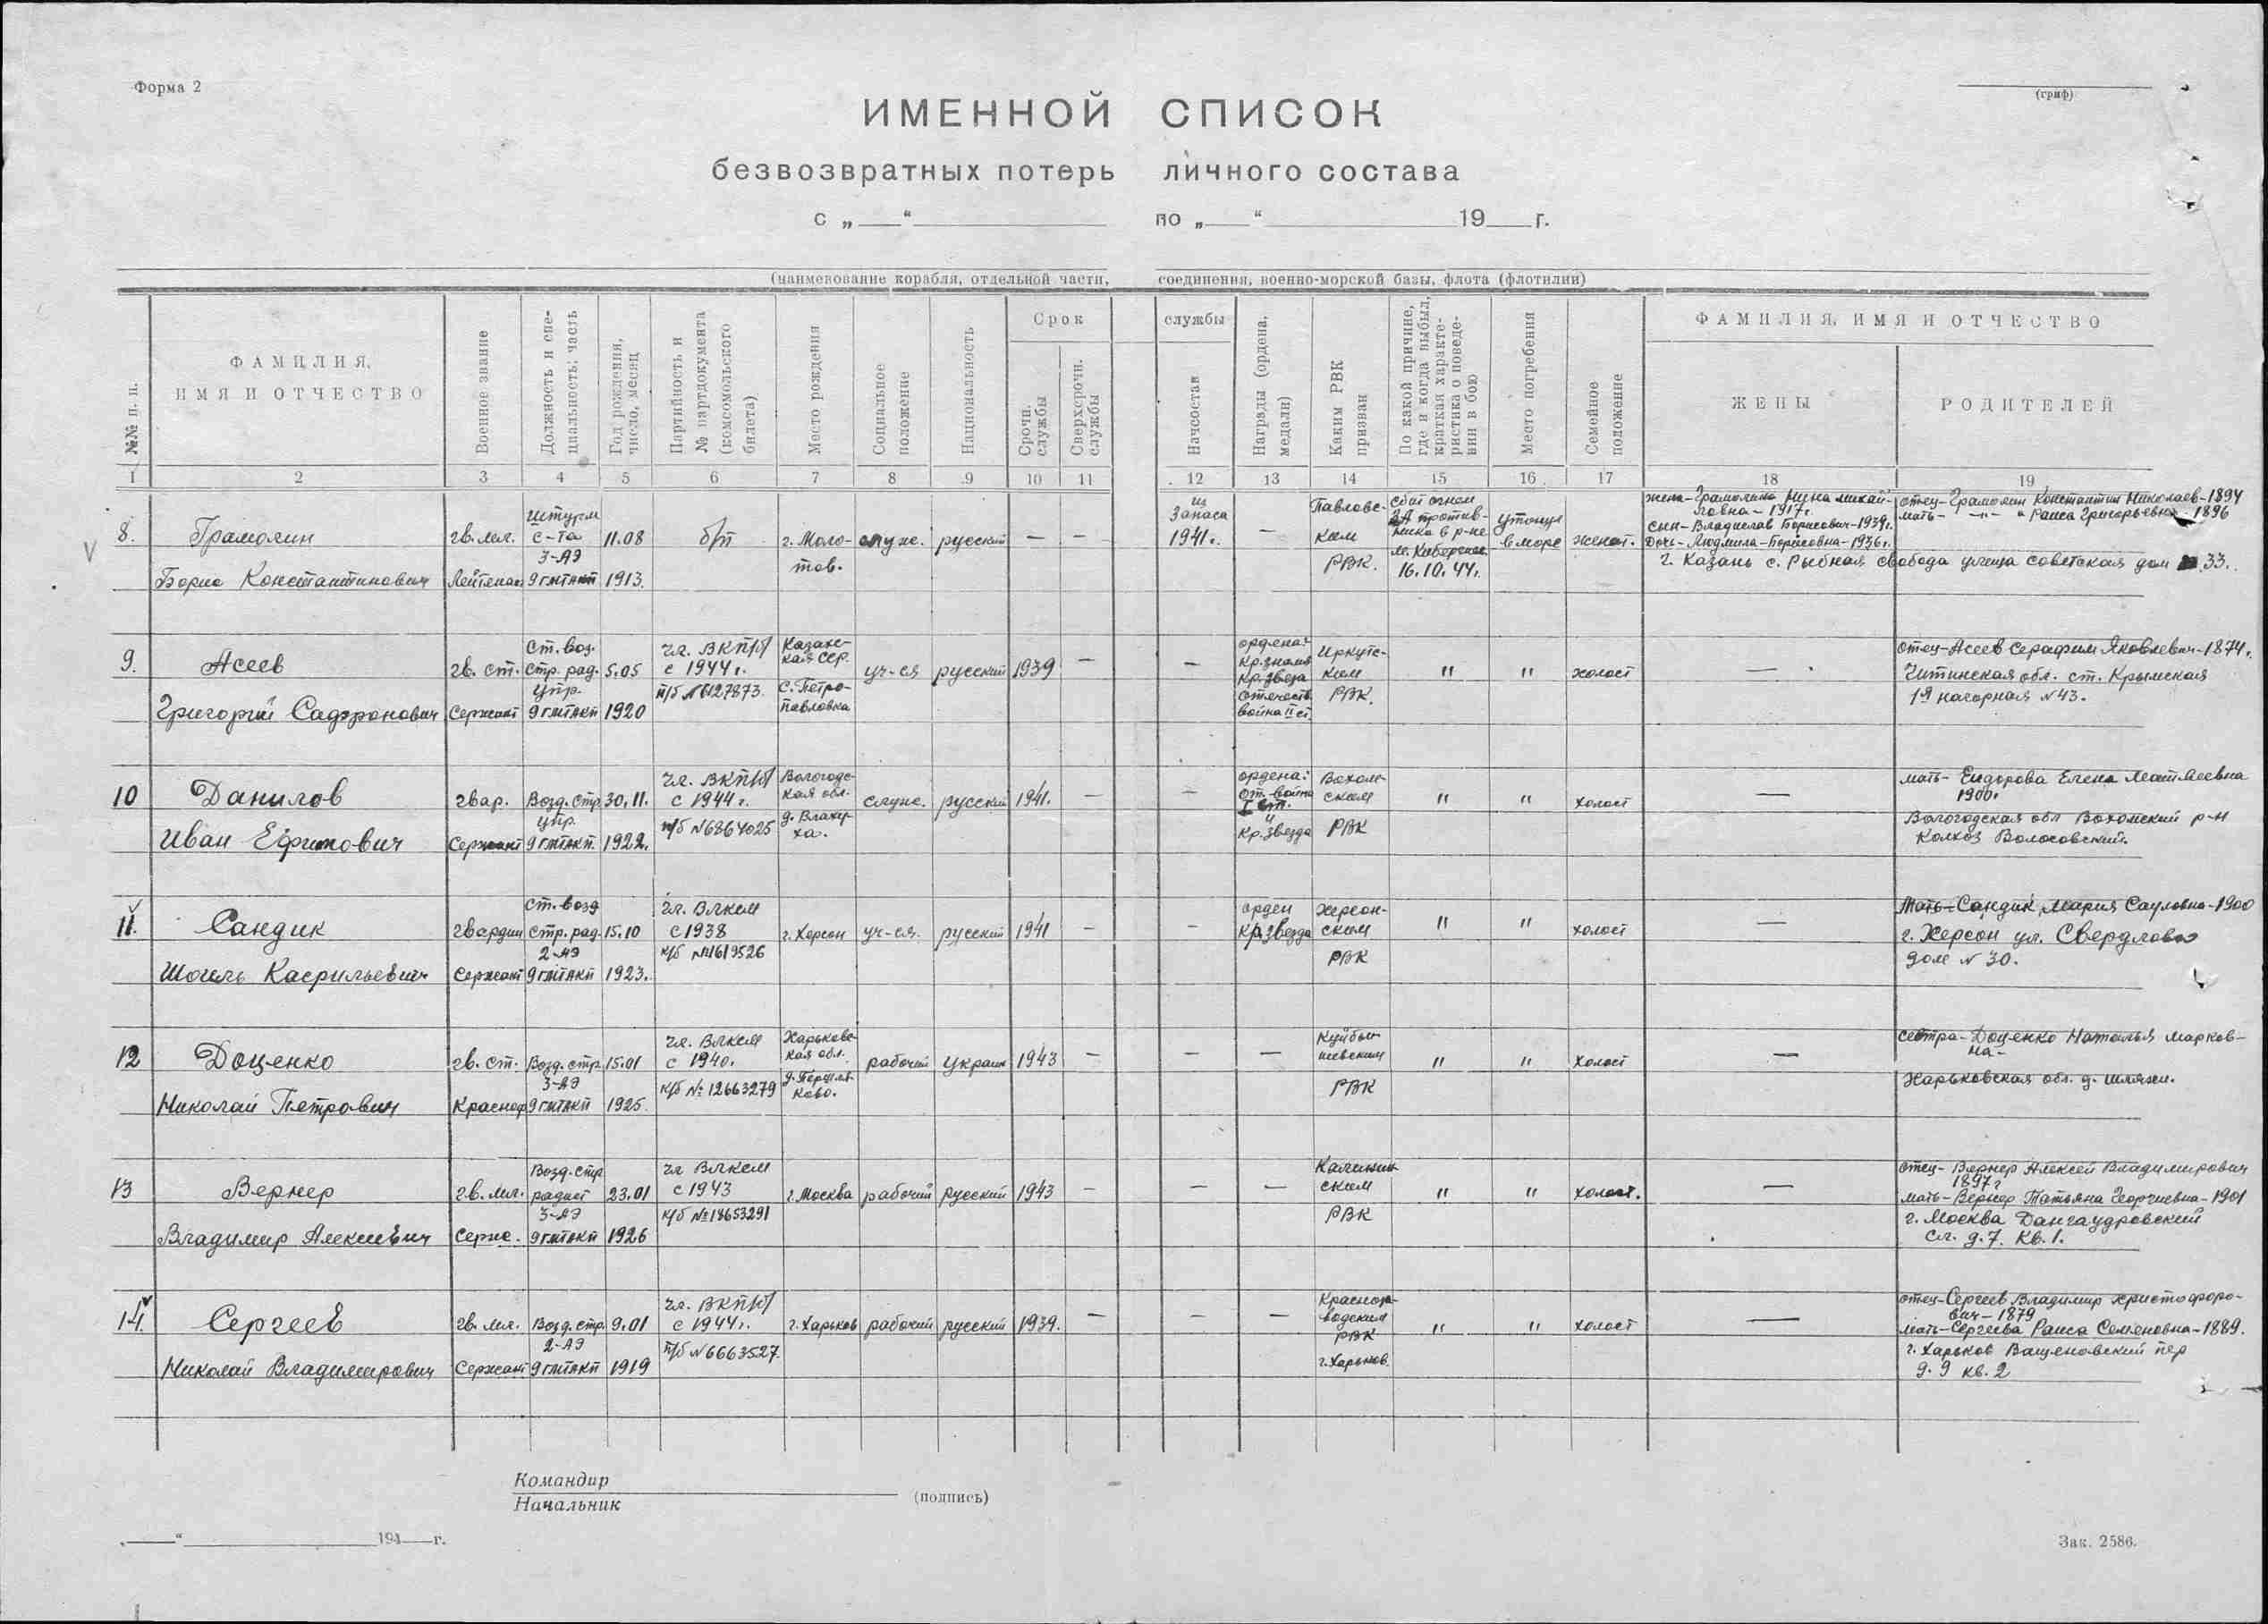 Форма 2
(гриф)
ИМЕННОЙ СПИСОК
безвозвратных потерь личного состава
с „ “ по „ “ 19 г.
(наименование корабля, отдельной части, соединения, военно-морской базы, флота (флотилии)
№№ п. п.
ФАМИЛИЯ,
ИМЯ И ОТЧЕСТВО
Военное звание
Должность и спе-
циальность; часть
Год рождения,
число, месяц
Партийность и
№ партдокумента
(комсомольского
билета)
Место рождения
Социальное
положение
Национальность
Срок службы
Срочн.
службы
Сверхсрочн.
службы
Начсостав
Награды (ордена,
медали)
Каким РВК
призван
По какой причине,
где и когда выбыл,
краткая характе-
ристика о поведе-
нии в бою
Место погребения
Семейное
положение
ФАМИЛИЯ, ИМЯ И ОТЧЕСТВО
ЖЕНЫ
РОДИТЕЛЕЙ
1 2 3 4 5 6 7 8 9 10 11 12 13 14 15 16 17 18 19
8.
Грамолин
Борис Константинович
гв. мл.
Лейтенант
Штурм
с-та
3-АЭ
9 гмтакп
11.08
1913.
б/п
г. Моло-
тов.
служ.
русский
—
—
из
Запаса
1941 г.
—
Павловс-
ким
РВК.
Сбит огнем
ЗА против-
ника в р-не
м. Киберснес.
16.10.44г.
Утонул
в море
женат.
жена-Грамолина Нина Михай-
ловна-1917г.
сын-Владислав Борисович-1939г.
Дочь-Людмила-Борисовна-1936г.
отец-Грамолин Константин Николаев-1894
мать- -"- " Раиса Григорьевна-1896
г. Казань с. Рыбная свобода улица советская дом 33.
9.
Асеев
Григорий Сафронович
гв. ст.
Сержант
Ст. воз.
стр. рад.
упр.
9 гмтакп
5.05
1920
чл. ВКП/б/
с 1944 г.
п/б №6127873.
Казахс-
кая ССР.
с. Петро-
павловка
уч-ся
русский
1939
—
—
ордена:
Кр. знамя
Кр. звезда
Отечеств.
война II ст.
Иркутс-
ким
РВК.
"
"
холост
—
отец-Асеев Серафим Яковлевич-1874г.
Читинская обл. ст. Крымская
1я нагорная №43.
10
Данилов
Иван Ефимович
гвар.
Сержант
Возд. стр.
упр.
9 гмтакп.
30.11.
1922.
чл. ВКП/б/
с 1944 г.
п/б №6864025
Вологодс-
кая обл.
д. Влахер-
ха.
служ.
русский
1941.
—
—
ордена:
От. война
I ст.
и
Кр. Звезда
Вохом-
ским
РВК
"
"
холост
—
мать- Евдорова Елена Матвеевна
1900.
Вологодская обл Вохомский р-н
Колхоз Волосовский.
11.
Сандик
Шогель Касрильевич
гвардии
Сержант
Ст. возд
стр. рад.
2-АЭ
9 гмтакп
15.10
1923.
чл. Влксм
с 1938
к/б №1619526
г. Херсон
уч-ся.
русский
1941
—
—
орден
Кр. Звезда
Херсон-
ским
РВК
"
"
холост
—
Мать-Сандик Мария Сауловна-1900
г. Херсон ул. Свердлова
дом № 30.
12
Доценко
Николай Петрович
гв. ст.
Красноф
Возд. стр.
3-АЭ
9 гмтакп
15.01
1925.
чл. Влксм
с 1940.
к/б № 12663279
Харьковс-
кая обл.
рабочий
украин
1943
—
—
—
Куйбы-
шевским
РВК
"
"
холост
—
сестра-Доценко Наталья Марков-
на-
Харьковская обл. д. Шляхи.
13
Вернер
Владимир Алексеевич
гв. мл.
Серж.
Возд. стр.
радист
3-АЭ
9 гмтакп
23.01
1926
чл Влксм
с 1943
к/б №18653291
г. Москва
рабочий
русский
1943
—
—
—
Калинин-
ским
РВК
"
"
холост.
—
отец- Вернер Алексей Владимирович
1897г
мать-Вернер Татьяна Георгиевна-1901
г. Москва Дангаудровский
сл. д. 7. Кв. 1.
14.
Сергеев
Николай Владимирович
гв. мл.
Сержант
Возд. стр.
2-АЭ
9 гмтакп
9.01
1919
чл. ВКП/б/
с 1944 г.
п/б №6663527.
г. Харьков
рабочий
русский
1939.
—
—
—
Красноза-
водским
РВК
г. Харьков.
"
"
холост
—
отец-Сергеев Владимир Христофоро-
вич-1879
мать-Сергеева Раиса Семеновна-1889.
г. Харьков Ващеновский пер
д. 9 кв. 2
Командир
Начальник
(подпись)
“ 194 г.
Зак. 2586.